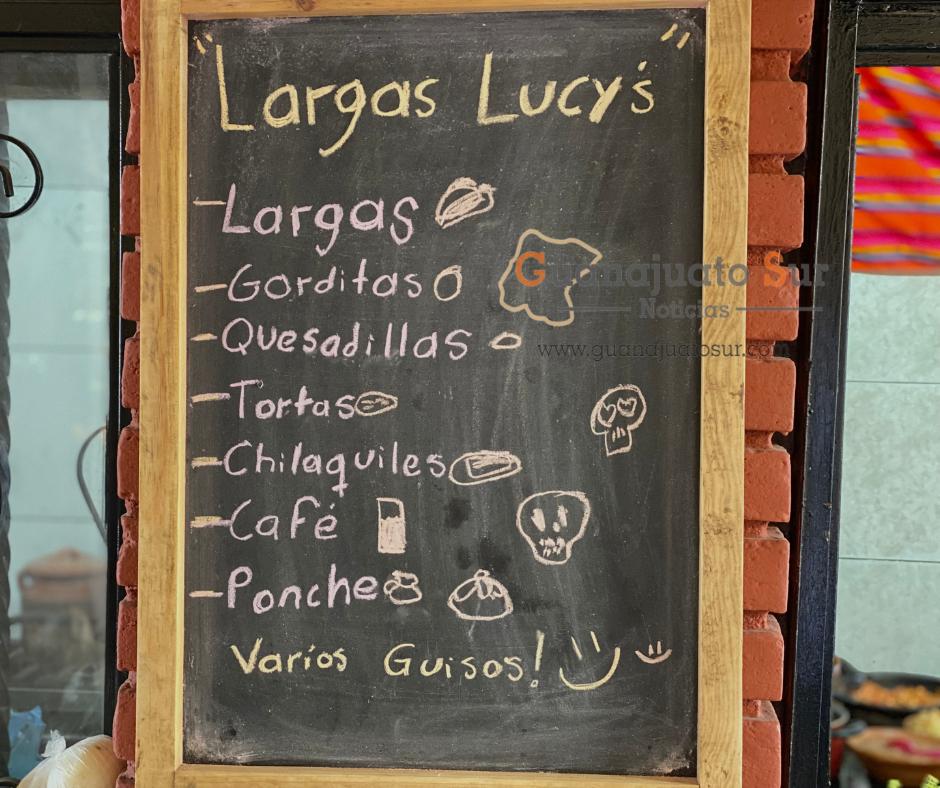 "Largas Lucy's"
-Largas
-Gorditas
-Quesadillas
-Tortas
-Chilaquiles
-Café
-Ponche
Varios Guisos!
Guanajuato Sur
Noticias
www.guanajuatosur.com